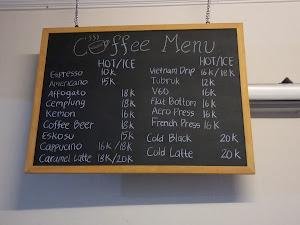 Coffee Menu
HOT/ICE
Espresso 10k
Americano 15k
Affogato 18k
Cemplung 18k
Kemon 16k
Coffee Beer 18k
Eskosu 15k
Cappucino 16k/18k
Caramel Latte 18k/20k
HOT/ICE
Vietnam Drip 16k/18k
Tubruk 12k
V60 16k
Flat Bottom 16k
Aero Press 16k
French Press 16k
Cold Black 20k
Cold Latte 20k